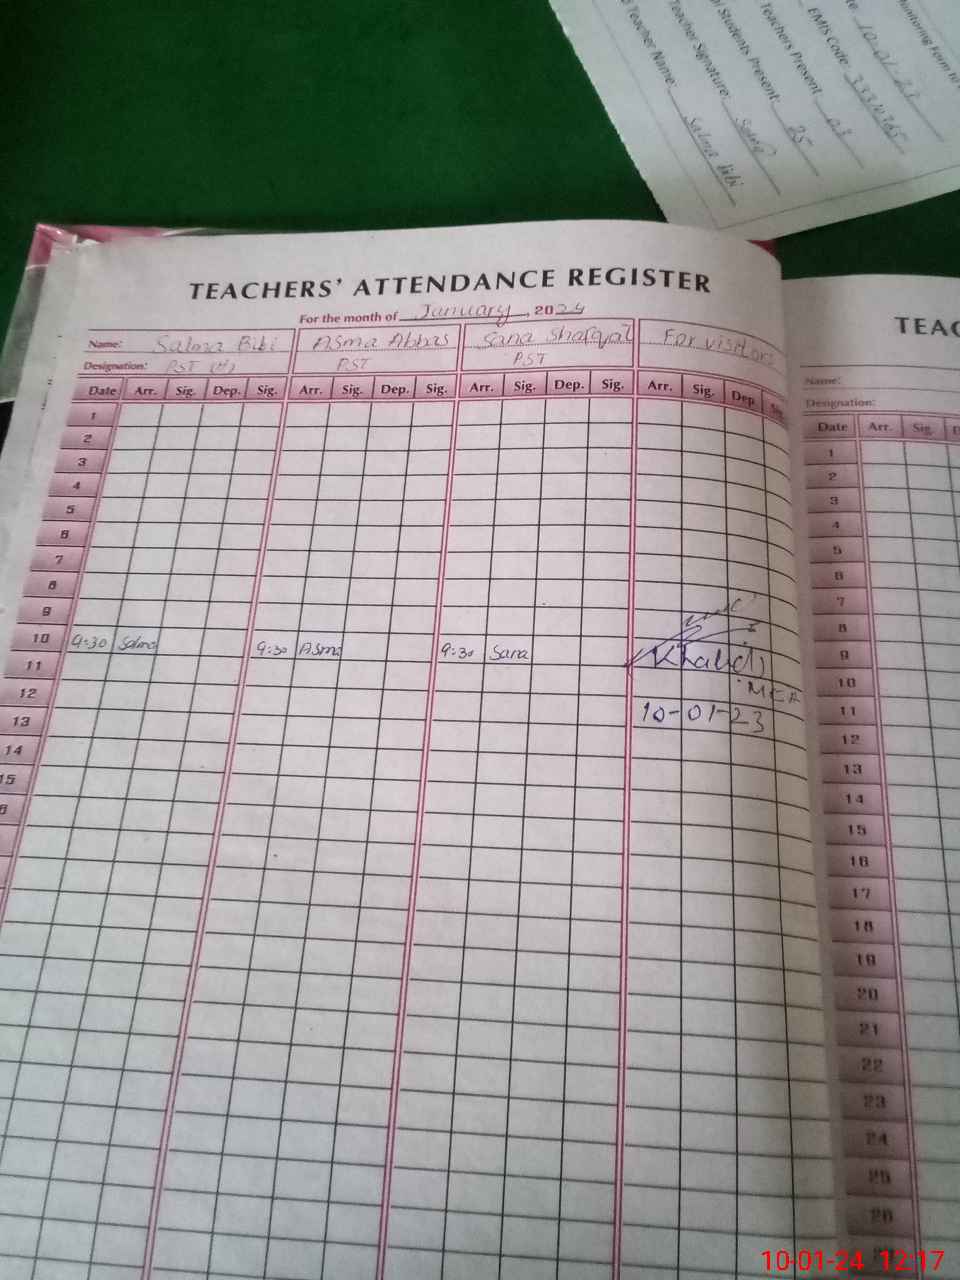 Monitoring Form to
10-01-23
EMIS Code: 33310365
Teachers Present 03
Students Present: 25
Teacher Signature:
Teacher Name: Salma Bibi
TEACHERS' ATTENDANCE REGISTER
For the month of January, 2024
Name: Salma Bibi Asma Abbas Sana Shafqat For visitors
Designation: PST (H) PST PST
Date Arr. Sig. Dep. Sig. Arr. Sig. Dep. Sig. Arr. Sig. Dep. Sig. Arr. Sig. Dep. Sig.
1
2
3
4
5
6
7
8
9
10 9:30 Salma 9:30 Asma 9:30 Sana Khalid
11
MEA
12
10-01-23
13
14
15
6
TEAC
Name:
Designation:
Date Arr. Sig. D
1
2
3
4
5
6
7
8
9
10
11
12
13
14
15
16
17
18
19
20
21
22
23
24
25
26
10-01-24 12:17